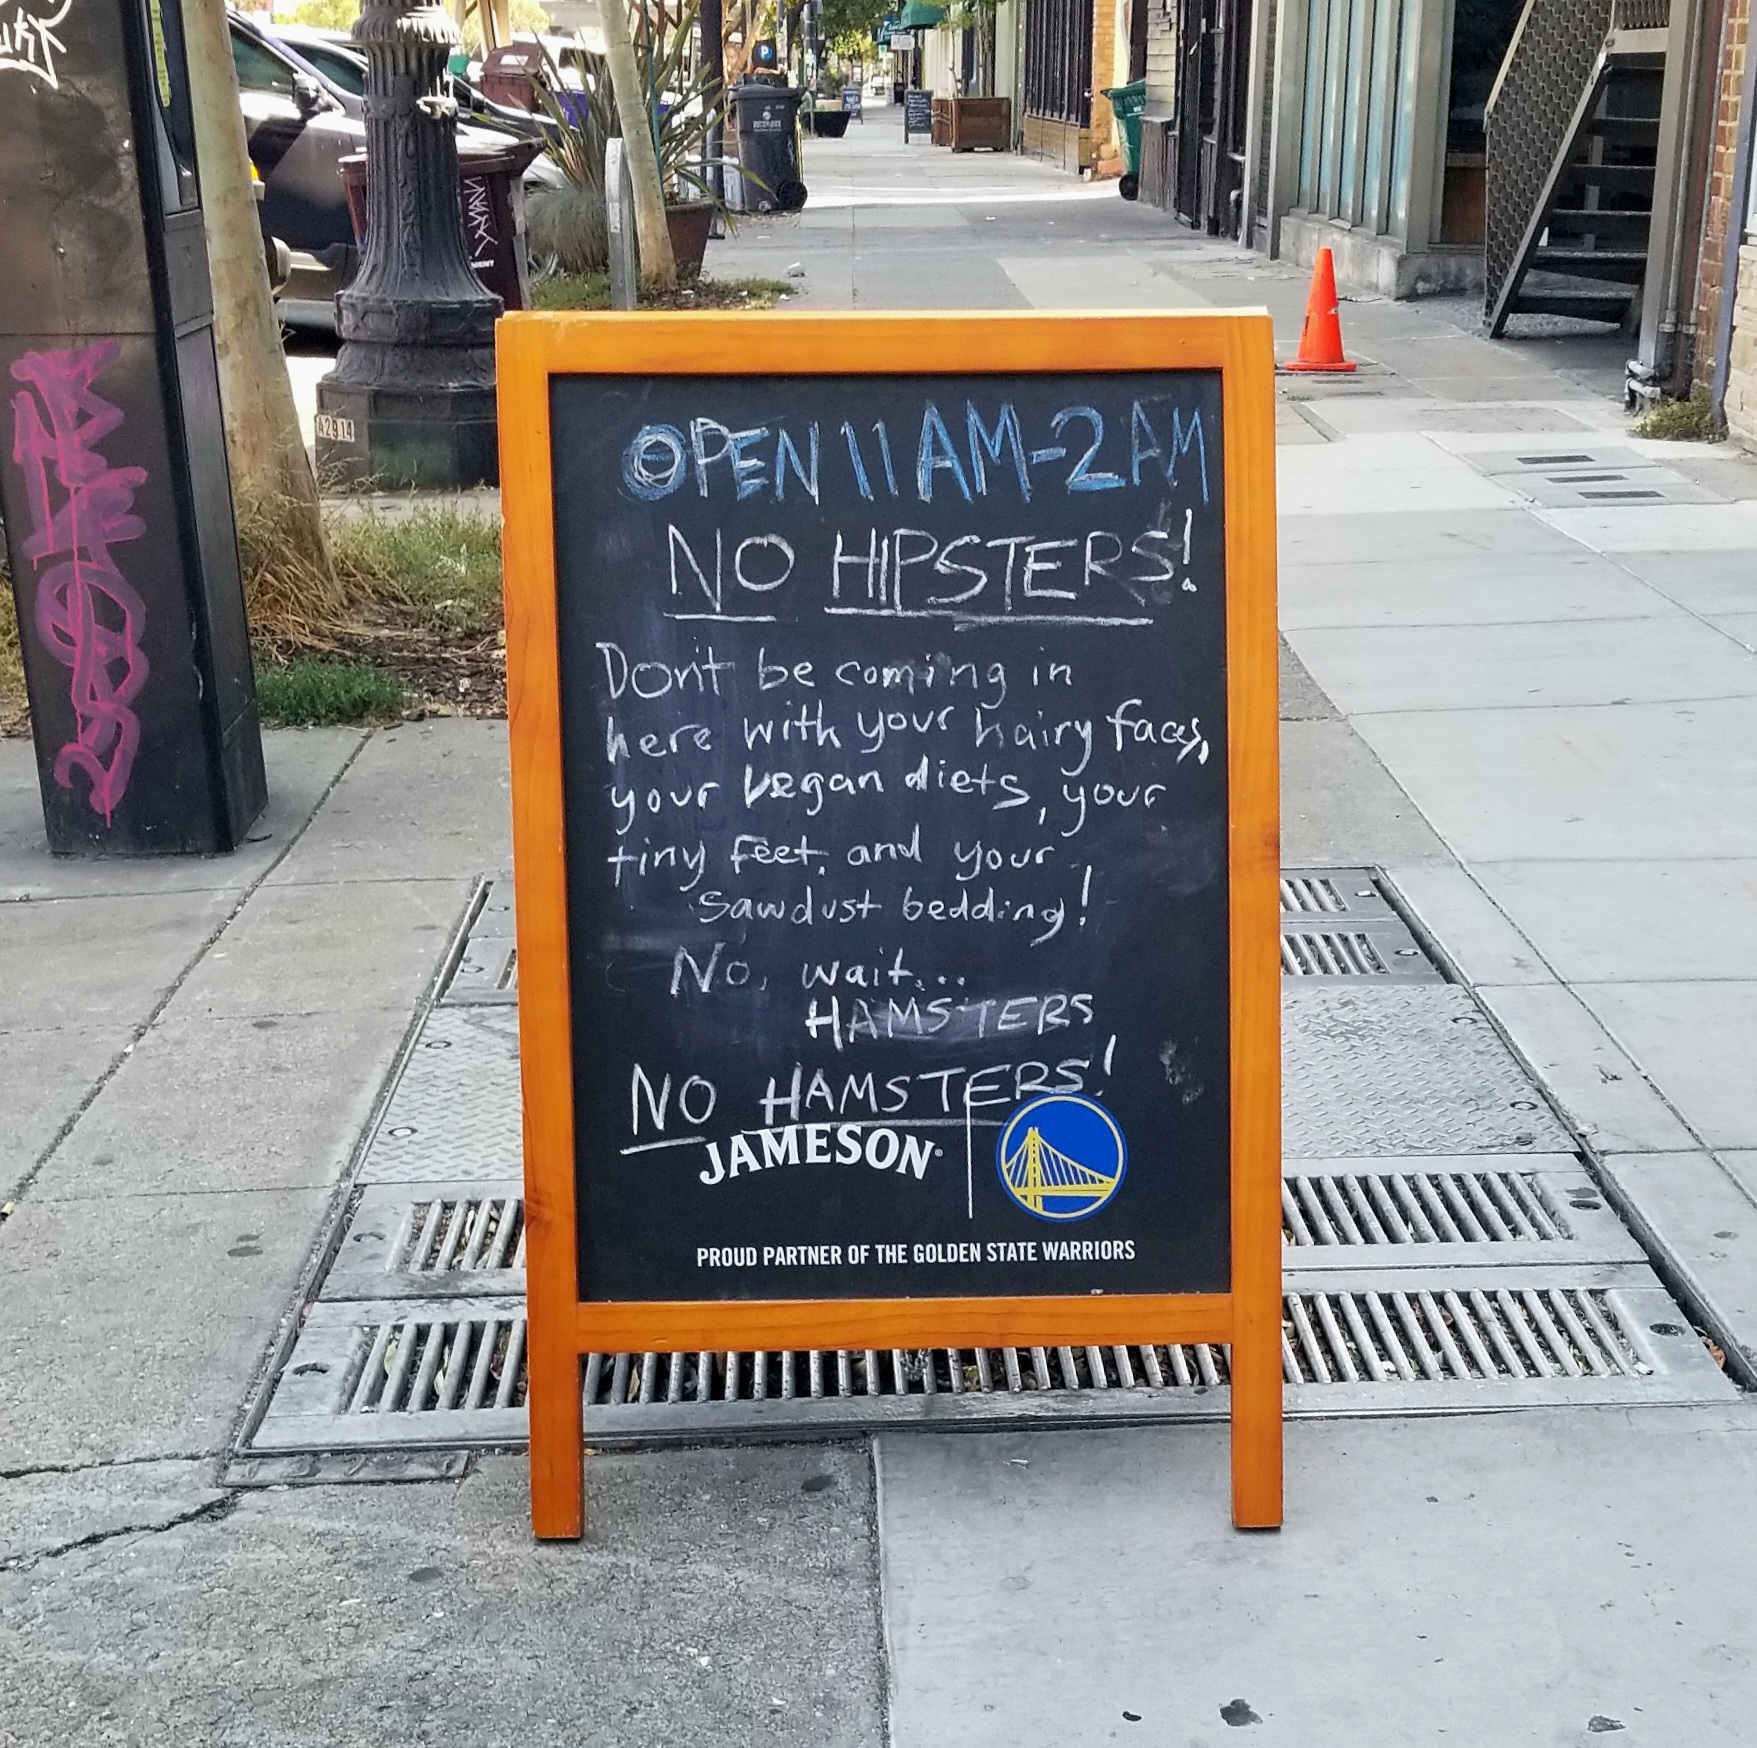 OPEN 11 AM-2 AM
NO HIPSTERS!
Don't be coming in
here with your hairy faces,
your vegan diets, your
tiny feet, and your
sawdust bedding!
No, wait...
HAMSTERS
NO HAMSTERS!
JAMESON®
PROUD PARTNER OF THE GOLDEN STATE WARRIORS
A2914
P